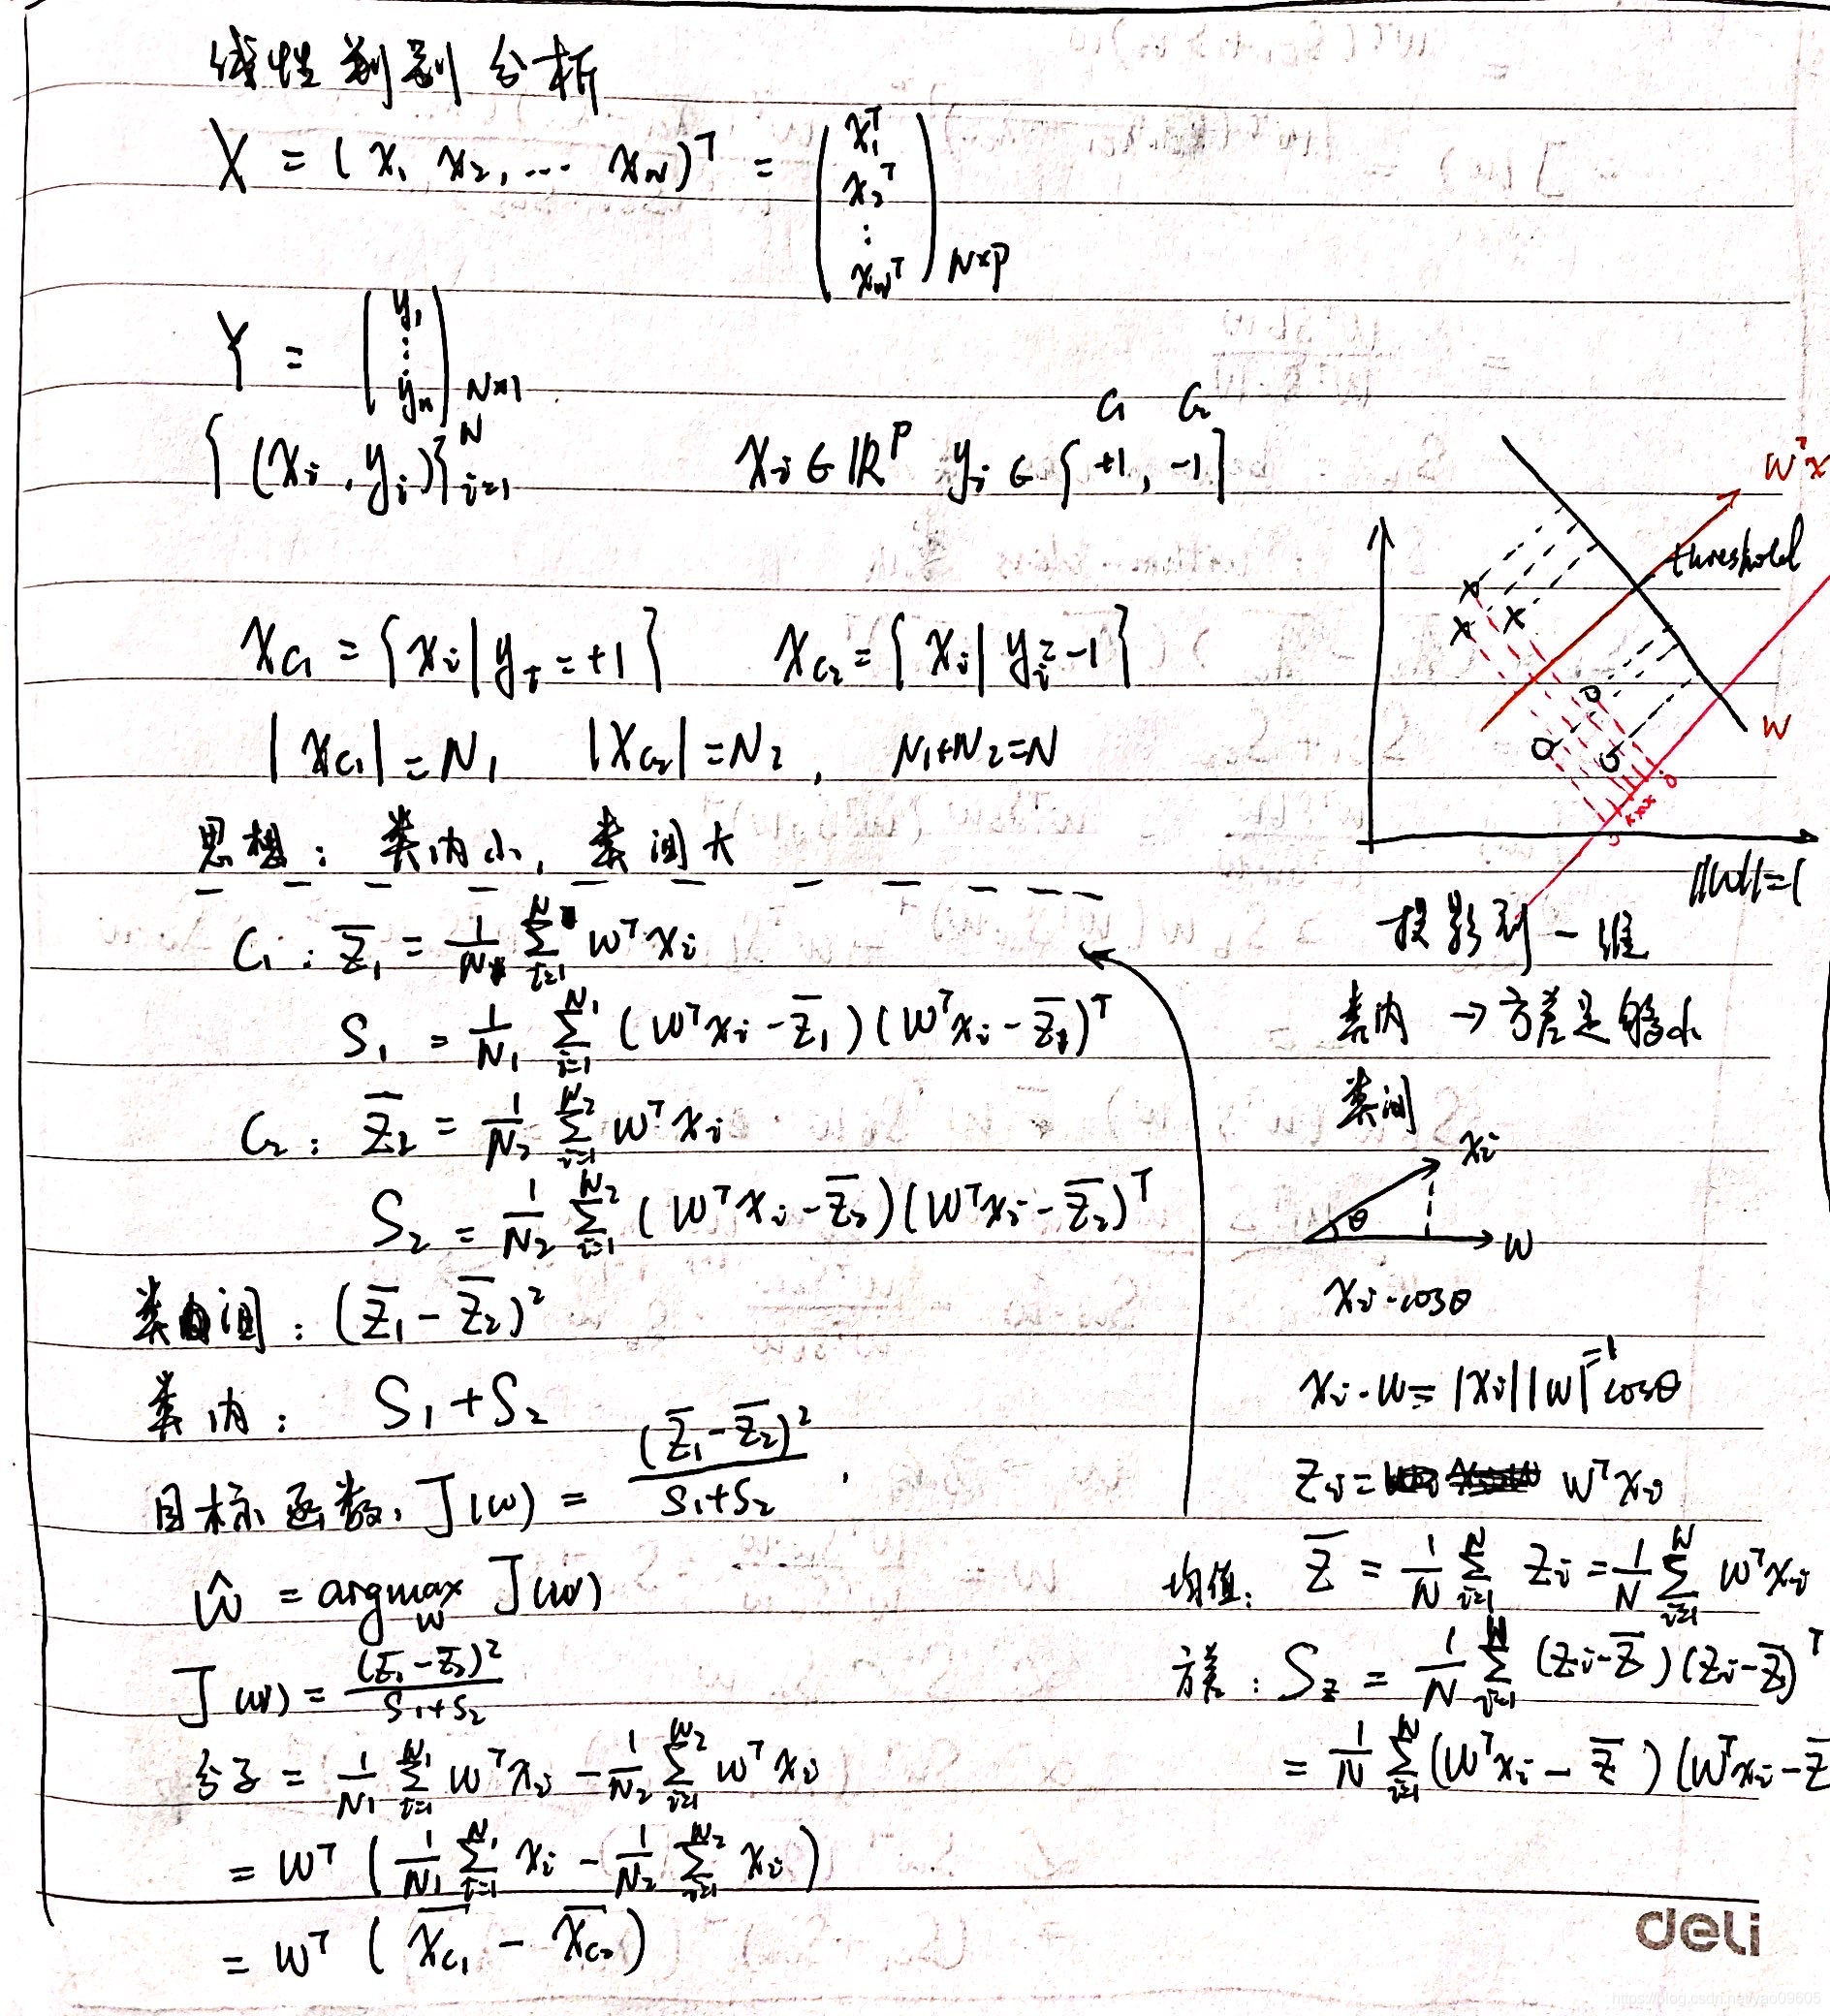 线性判别分析
X = (x₁ x₂, ... x_N)ᵀ = (x₁ᵀ x₂ᵀ ⋮ x_Nᵀ)_{N×P}
Y = (y₁ ⋮ y_n)_{N×1}
C₁ C₂
{(xᵢ, yᵢ)}ᵢ₌₁ᴺ xᵢ ∈ ℝᴾ yᵢ ∈ {+1, -1}
x_{C₁} = {xᵢ | yᵢ = +1} x_{C₂} = {xᵢ | yᵢ = -1}
|x_{C₁}| = N₁ |x_{C₂}| = N₂, N₁+N₂=N
思想: 类内小, 类间大
C₁: z̄₁ = 1/N₁ Σᵢ₌₁^{N₁} wᵀxᵢ
S₁ = 1/N₁ Σᵢ₌₁^{N₁} (wᵀxᵢ - z̄₁)(wᵀxᵢ - z̄₁)ᵀ
C₂: z̄₂ = 1/N₂ Σᵢ₌₁^{N₂} wᵀxᵢ
S₂ = 1/N₂ Σᵢ₌₁^{N₂} (wᵀxᵢ - z̄₂)(wᵀxᵢ - z̄₂)ᵀ
类间: (z̄₁ - z̄₂)²
类内: S₁+S₂
目标函数, J(w) = (z̄₁ - z̄₂)² / (S₁+S₂).
ŵ = argmax_w J(w)
J(w) = (z̄₁ - z̄₂)² / (S₁+S₂)
分子 = 1/N₁ Σᵢ₌₁^{N₁} wᵀxᵢ - 1/N₂ Σᵢ₌₁^{N₂} wᵀxᵢ
= wᵀ (1/N₁ Σᵢ₌₁^{N₁} xᵢ - 1/N₂ Σᵢ₌₁^{N₂} xᵢ)
= wᵀ (x̄_{C₁} - x̄_{C₂})
wᵀx
threshold
w
||w||=1
投影到一维
类内 → 方差足够小
类间
xᵢ
θ
w
xᵢ·cosθ
xᵢ·w = |xᵢ||w| cosθ
=1
zᵢ = wᵀxᵢ
均值: z̄ = 1/N Σᵢ₌₁ᴺ zᵢ = 1/N Σᵢ₌₁ᴺ wᵀxᵢ
方差: S_z = 1/N Σᵢ₌₁ᴺ (zᵢ - z̄)(zᵢ - z̄)ᵀ
= 1/N Σᵢ₌₁ᴺ (wᵀxᵢ - z̄)(wᵀxᵢ - z̄
deli
https://blog.csdn.net/yao09605